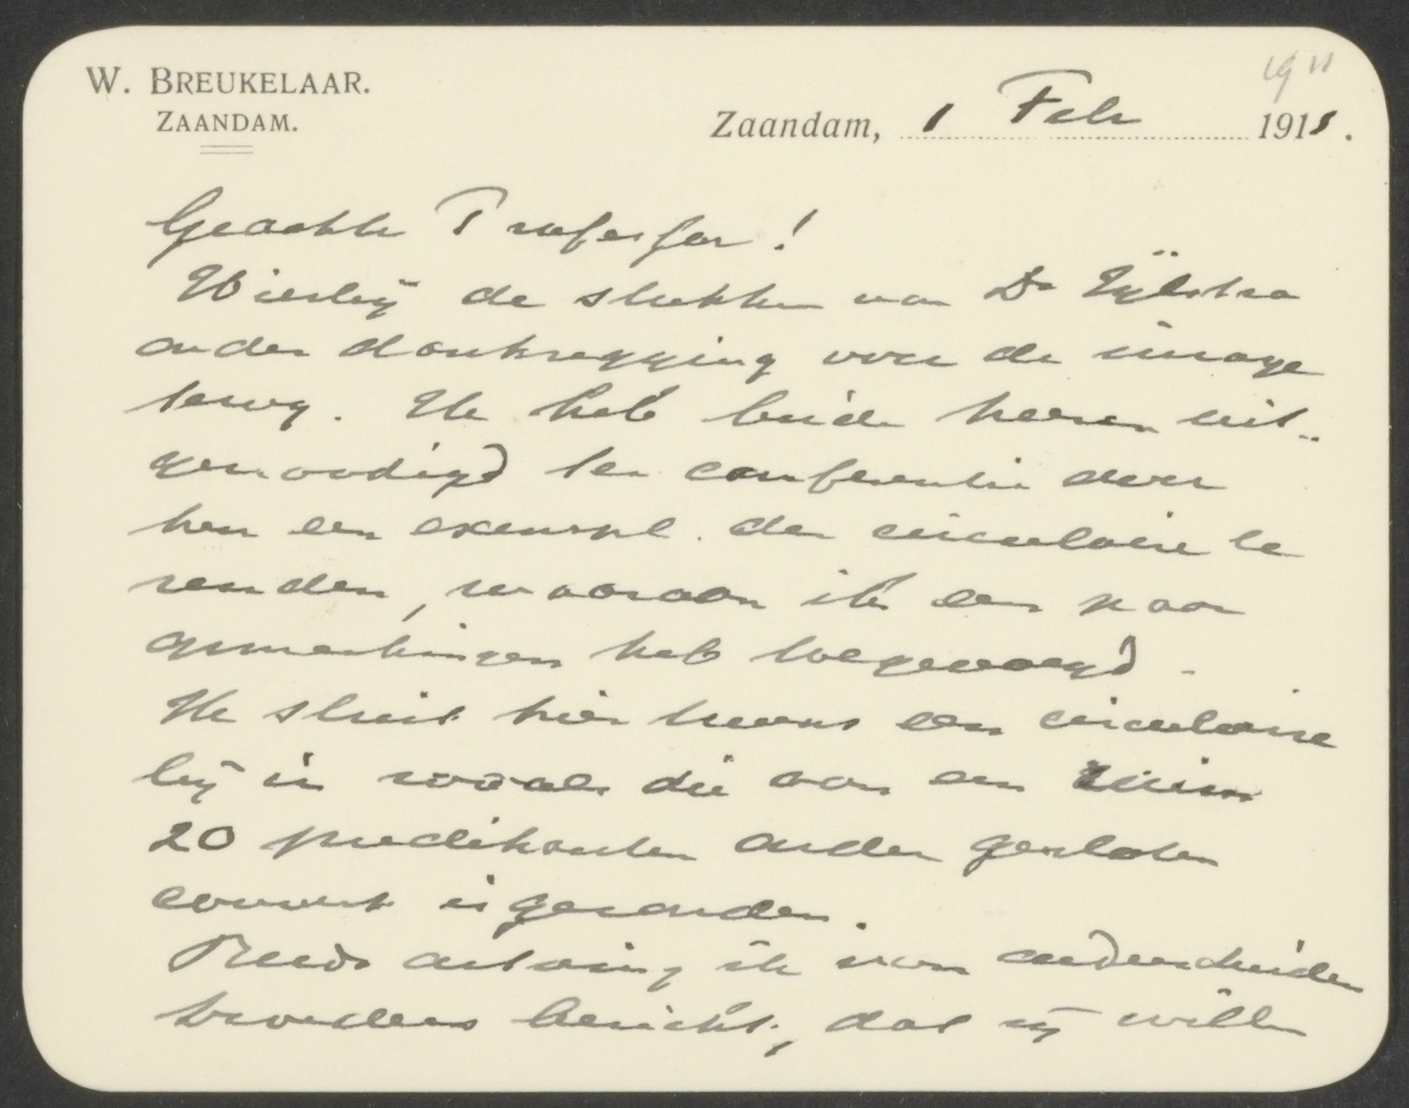 W. BREUKELAAR.
ZAANDAM.
1911
Zaandam, 1 Feb 1911.
Geachte Professor!
Hierbij de stukken van Dr Zijlstra
onder dankzegging voor de inzage
terug. Ik heb beide heeren uit-
genoodigd ter conferentie door
hen een exempl. der circulaire te
zenden, waaraan ik een paar
opmerkingen heb toegevoegd.
Ik sluit hier tevens een circulaire
bij in zooals die aan een
20 predikanten onder gesloten
couvert is gezonden.
Reeds ontving ik van onderscheiden
broeders bericht, dat zij willen